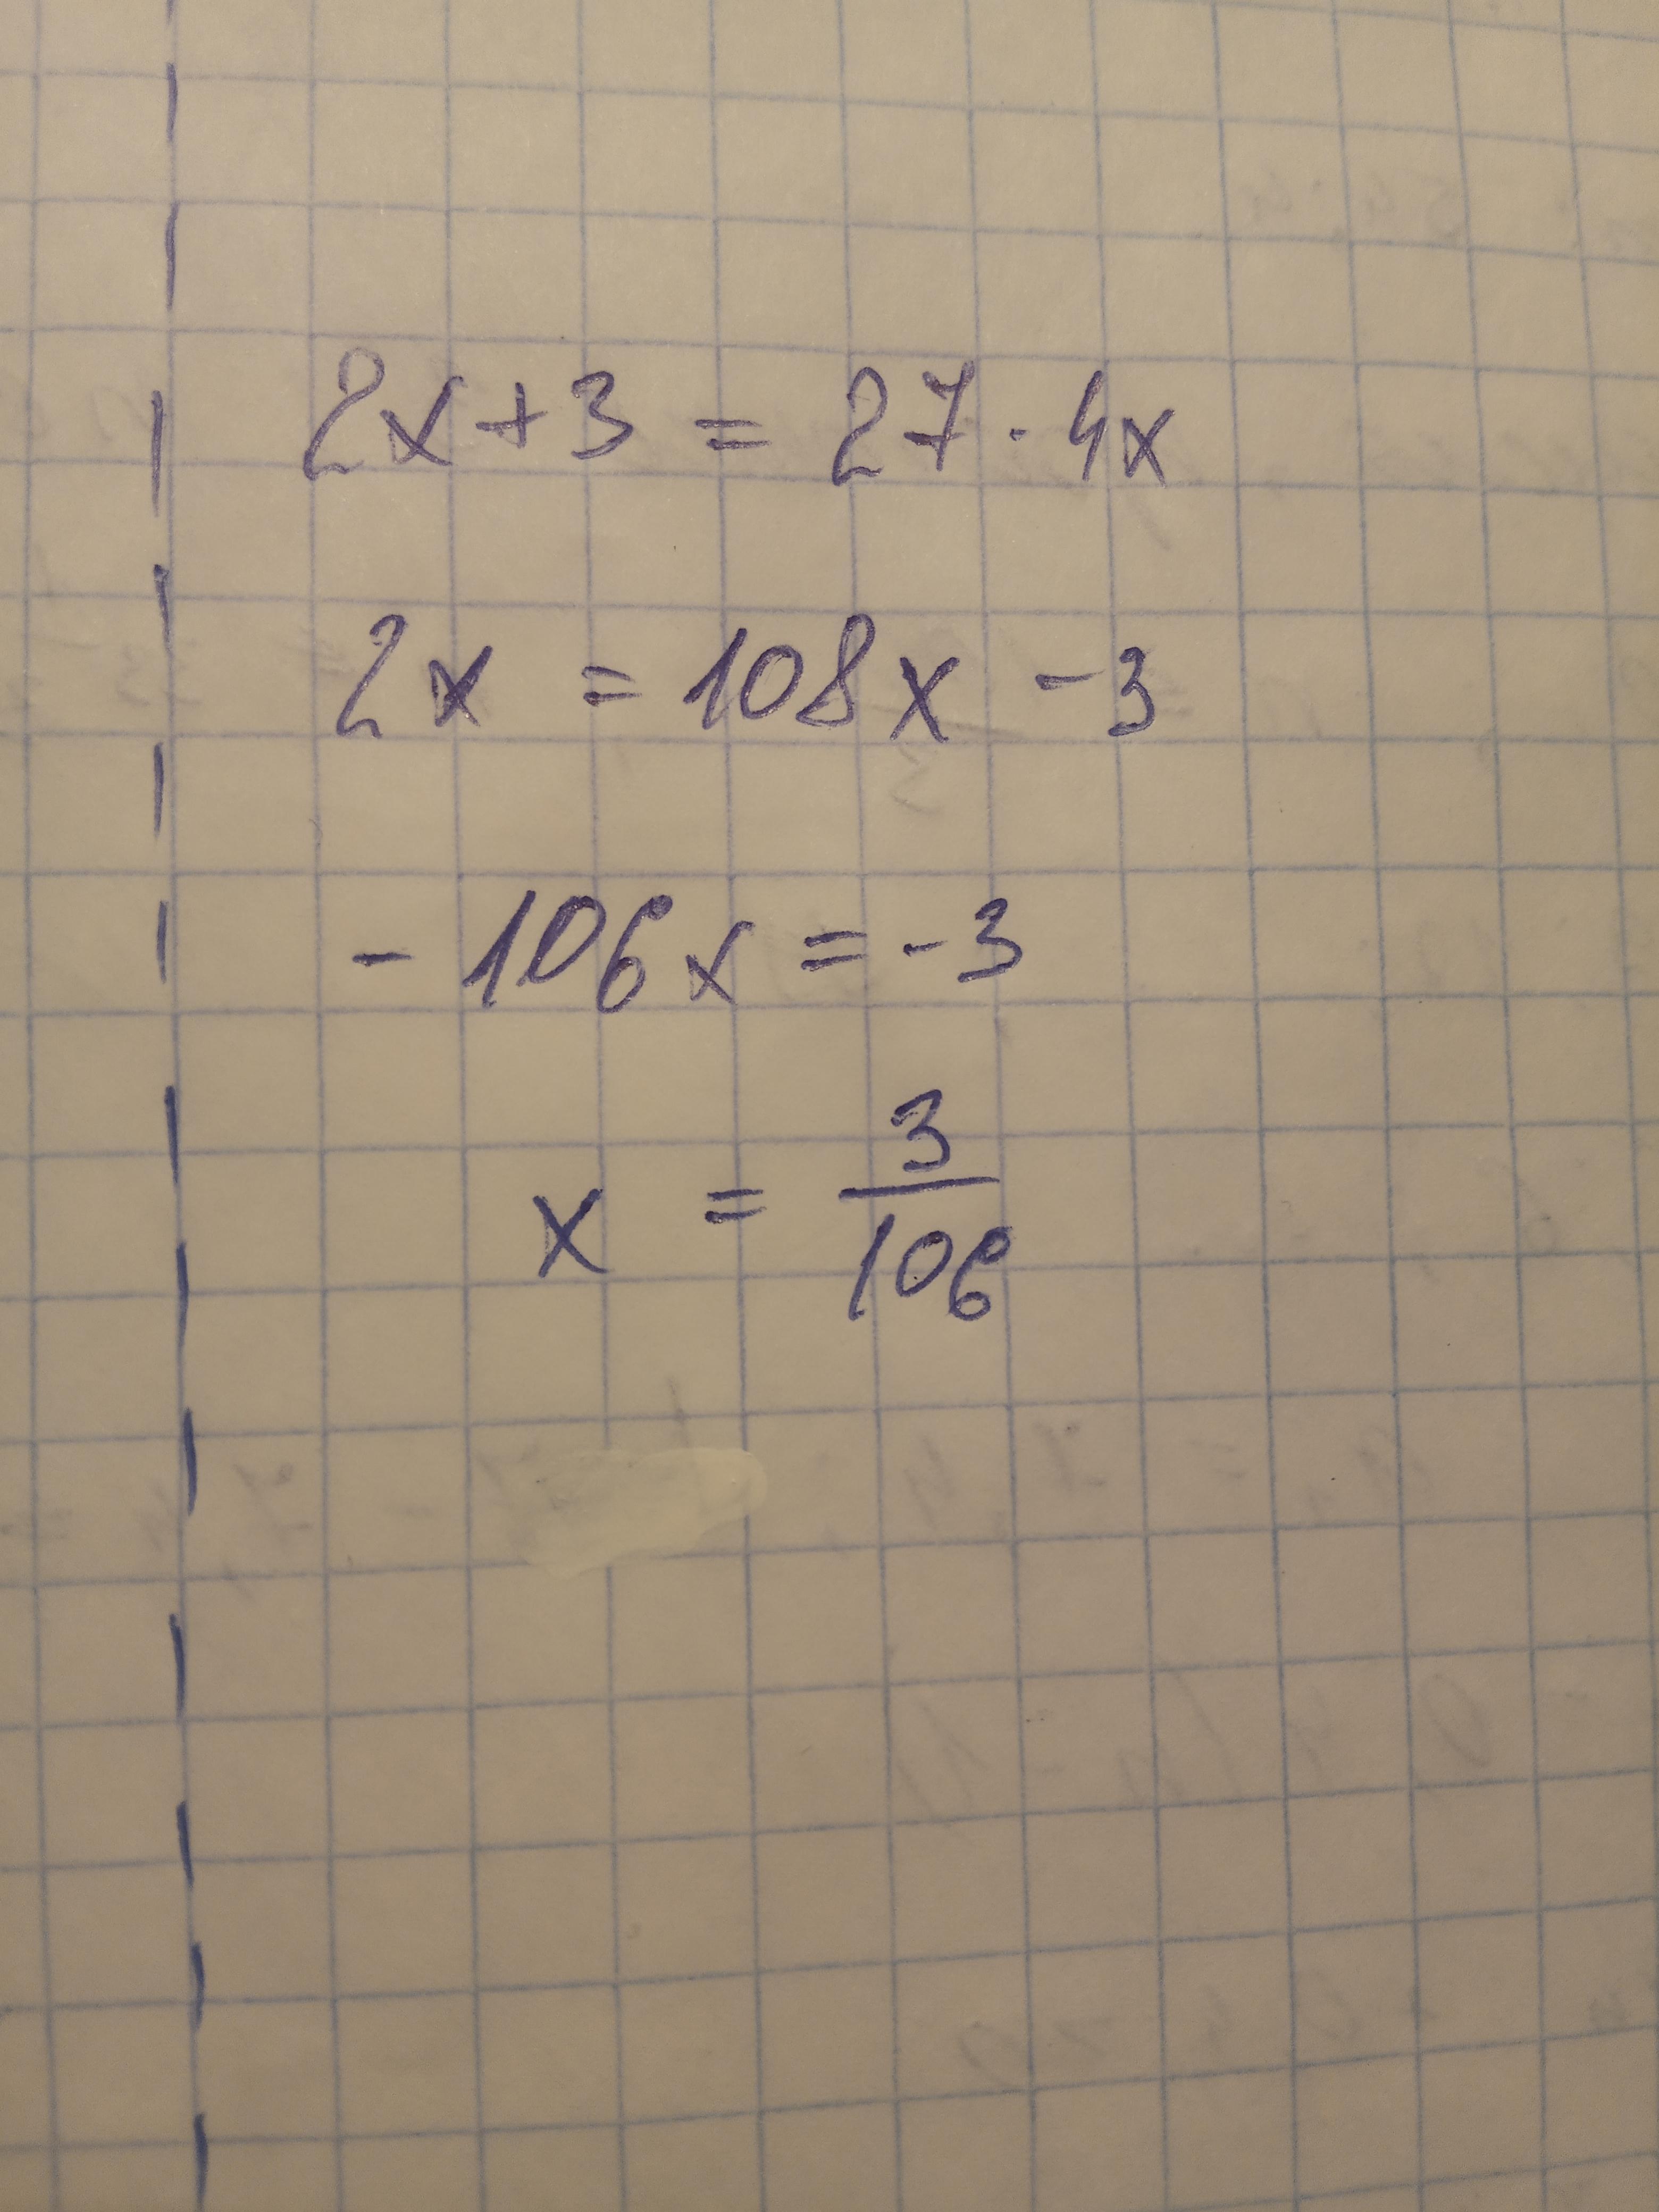 2x + 3 = 27 · 4x
2x = 108x - 3
- 106x = -3
x = 3/106